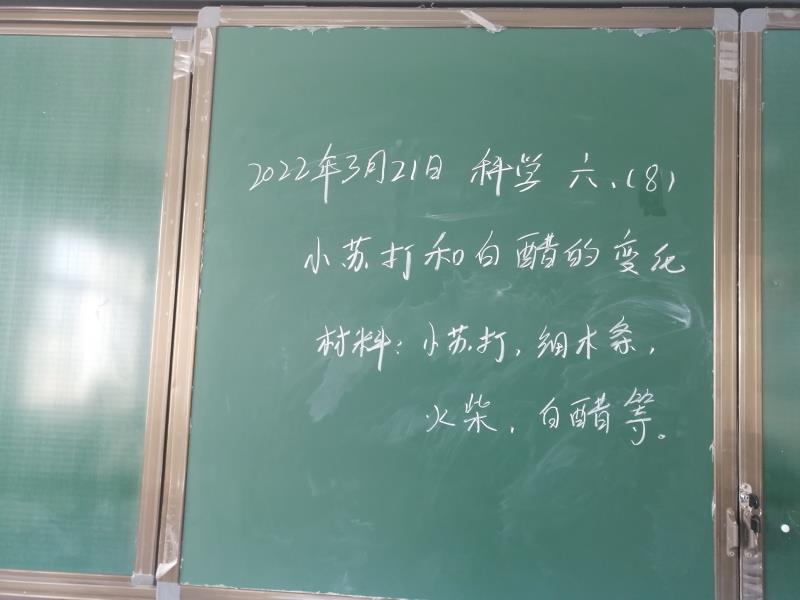 2022年3月21日 科学 六、(8)
小苏打和白醋的变化
材料：小苏打，细木条，
火柴，白醋等。